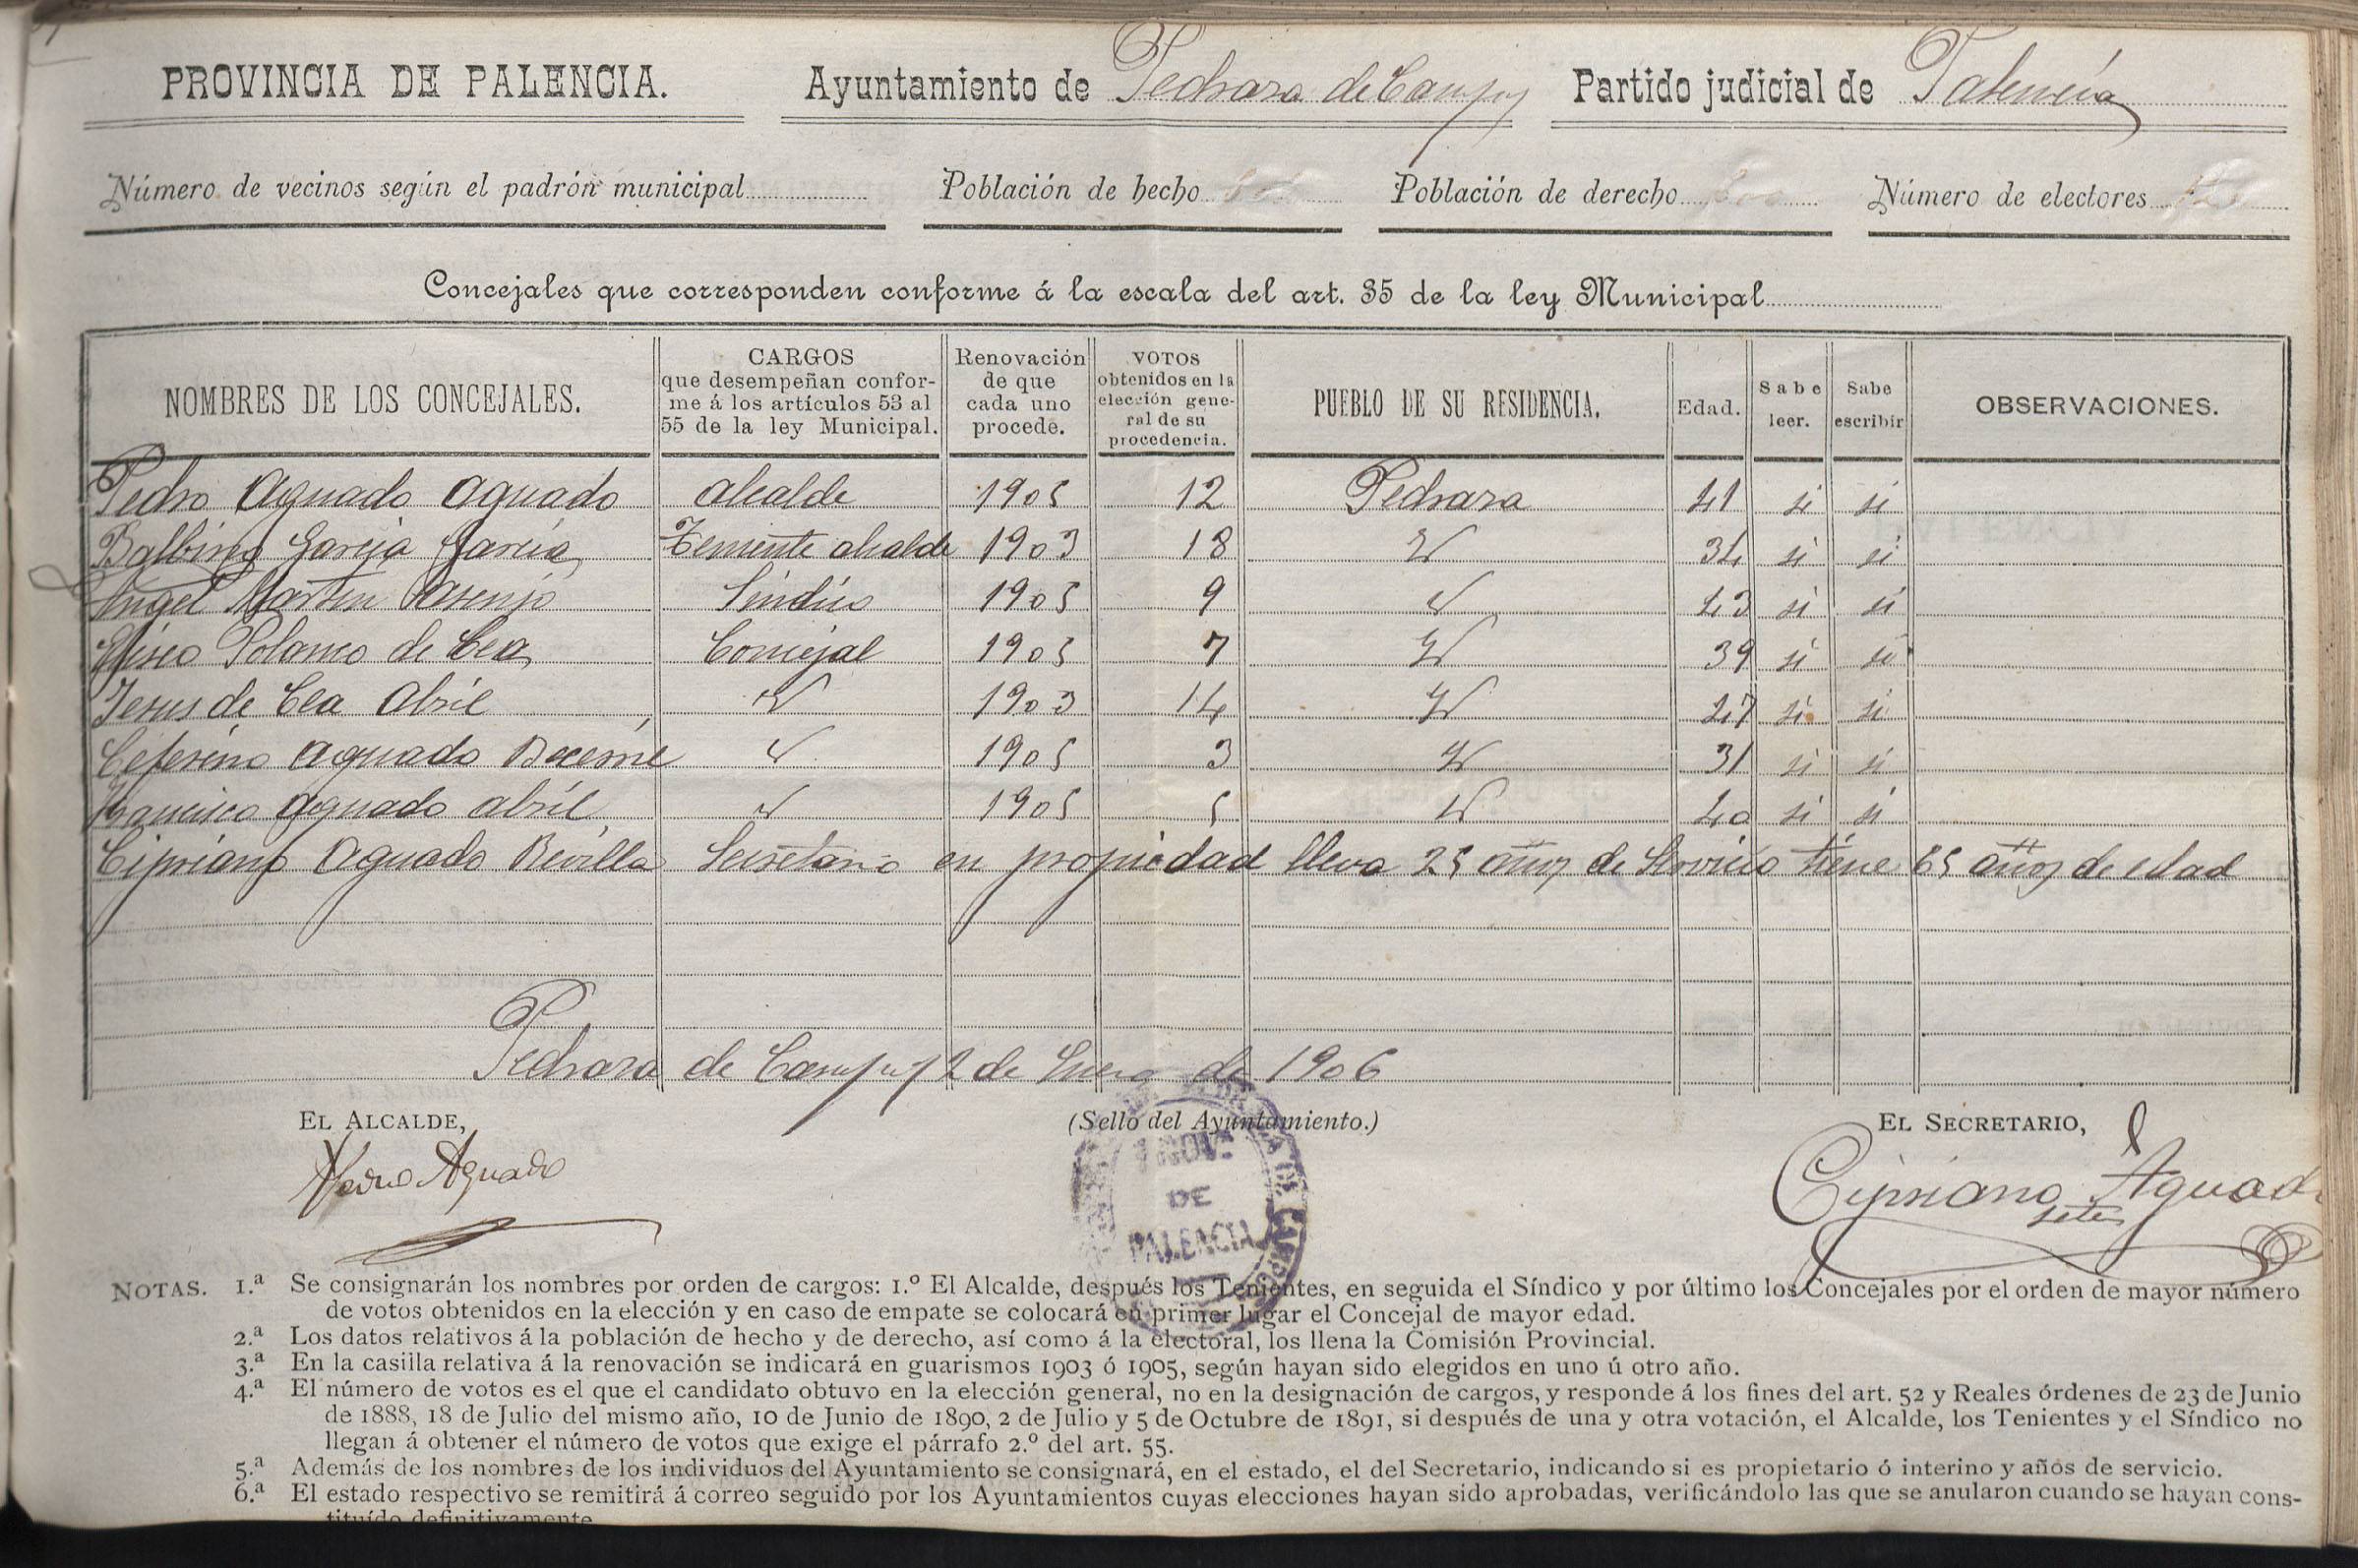 PROVINCIA DE PALENCIA. Ayuntamiento de Pedraza de Campos Partido judicial de Palencia
Número de vecinos según el padrón municipal Población de hecho Población de derecho Número de electores
Concejales que corresponden conforme á la escala del art. 35 de la ley Municipal
NOMBRES DE LOS CONCEJALES. CARGOS que desempeñan conforme á los artículos 53 al 55 de la ley Municipal. Renovación de que cada uno procede. VOTOS obtenidos en la elección general de su procedencia. PUEBLO DE SU RESIDENCIA. Edad. Sabe leer. Sabe escribir OBSERVACIONES.
Pedro Aguado Aguado alcalde 1905 12 Pedraza 41 si si
Balbino Garcia Garcia Teniente alcalde 1903 18 34 si si
Angel Martin Asenjo Sindico 1905 9 43 si si
Eliseo Polanco de Cea Concejal 1905 7 39 si si
Jesus de Cea Abril 1903 14 27 si si
Ceferino Aguado 1905 3 31 si si
Francisco Aguado Abril 1905 5 40 si si
Cipriano Aguado Revilla Secretario en propiedad lleva 25 años de Servicio tiene 65 años de edad
Pedraza de Campos 2 de Enero de 1906
EL ALCALDE, (Sello del Ayuntamiento.) EL SECRETARIO,
Pedro Aguado
PROV.
DE
PALENCIA
Cipriano Aguado
NOTAS. 1.ª Se consignarán los nombres por orden de cargos: 1.º El Alcalde, después los Tenientes, en seguida el Síndico y por último los Concejales por el orden de mayor número
de votos obtenidos en la elección y en caso de empate se colocará en primer lugar el Concejal de mayor edad.
2.ª Los datos relativos á la población de hecho y de derecho, así como á la electoral, los llena la Comisión Provincial.
3.ª En la casilla relativa á la renovación se indicará en guarismos 1903 ó 1905, según hayan sido elegidos en uno ú otro año.
4.ª El número de votos es el que el candidato obtuvo en la elección general, no en la designación de cargos, y responde á los fines del art. 52 y Reales órdenes de 23 de Junio
de 1888, 18 de Julio del mismo año, 10 de Junio de 1890, 2 de Julio y 5 de Octubre de 1891, si después de una y otra votación, el Alcalde, los Tenientes y el Síndico no
llegan á obtener el número de votos que exige el párrafo 2.º del art. 55.
5.ª Además de los nombres de los individuos del Ayuntamiento se consignará, en el estado, el del Secretario, indicando si es propietario ó interino y años de servicio.
6.ª El estado respectivo se remitirá á correo seguido por los Ayuntamientos cuyas elecciones hayan sido aprobadas, verificándolo las que se anularon cuando se hayan cons-
tituído definitivamente